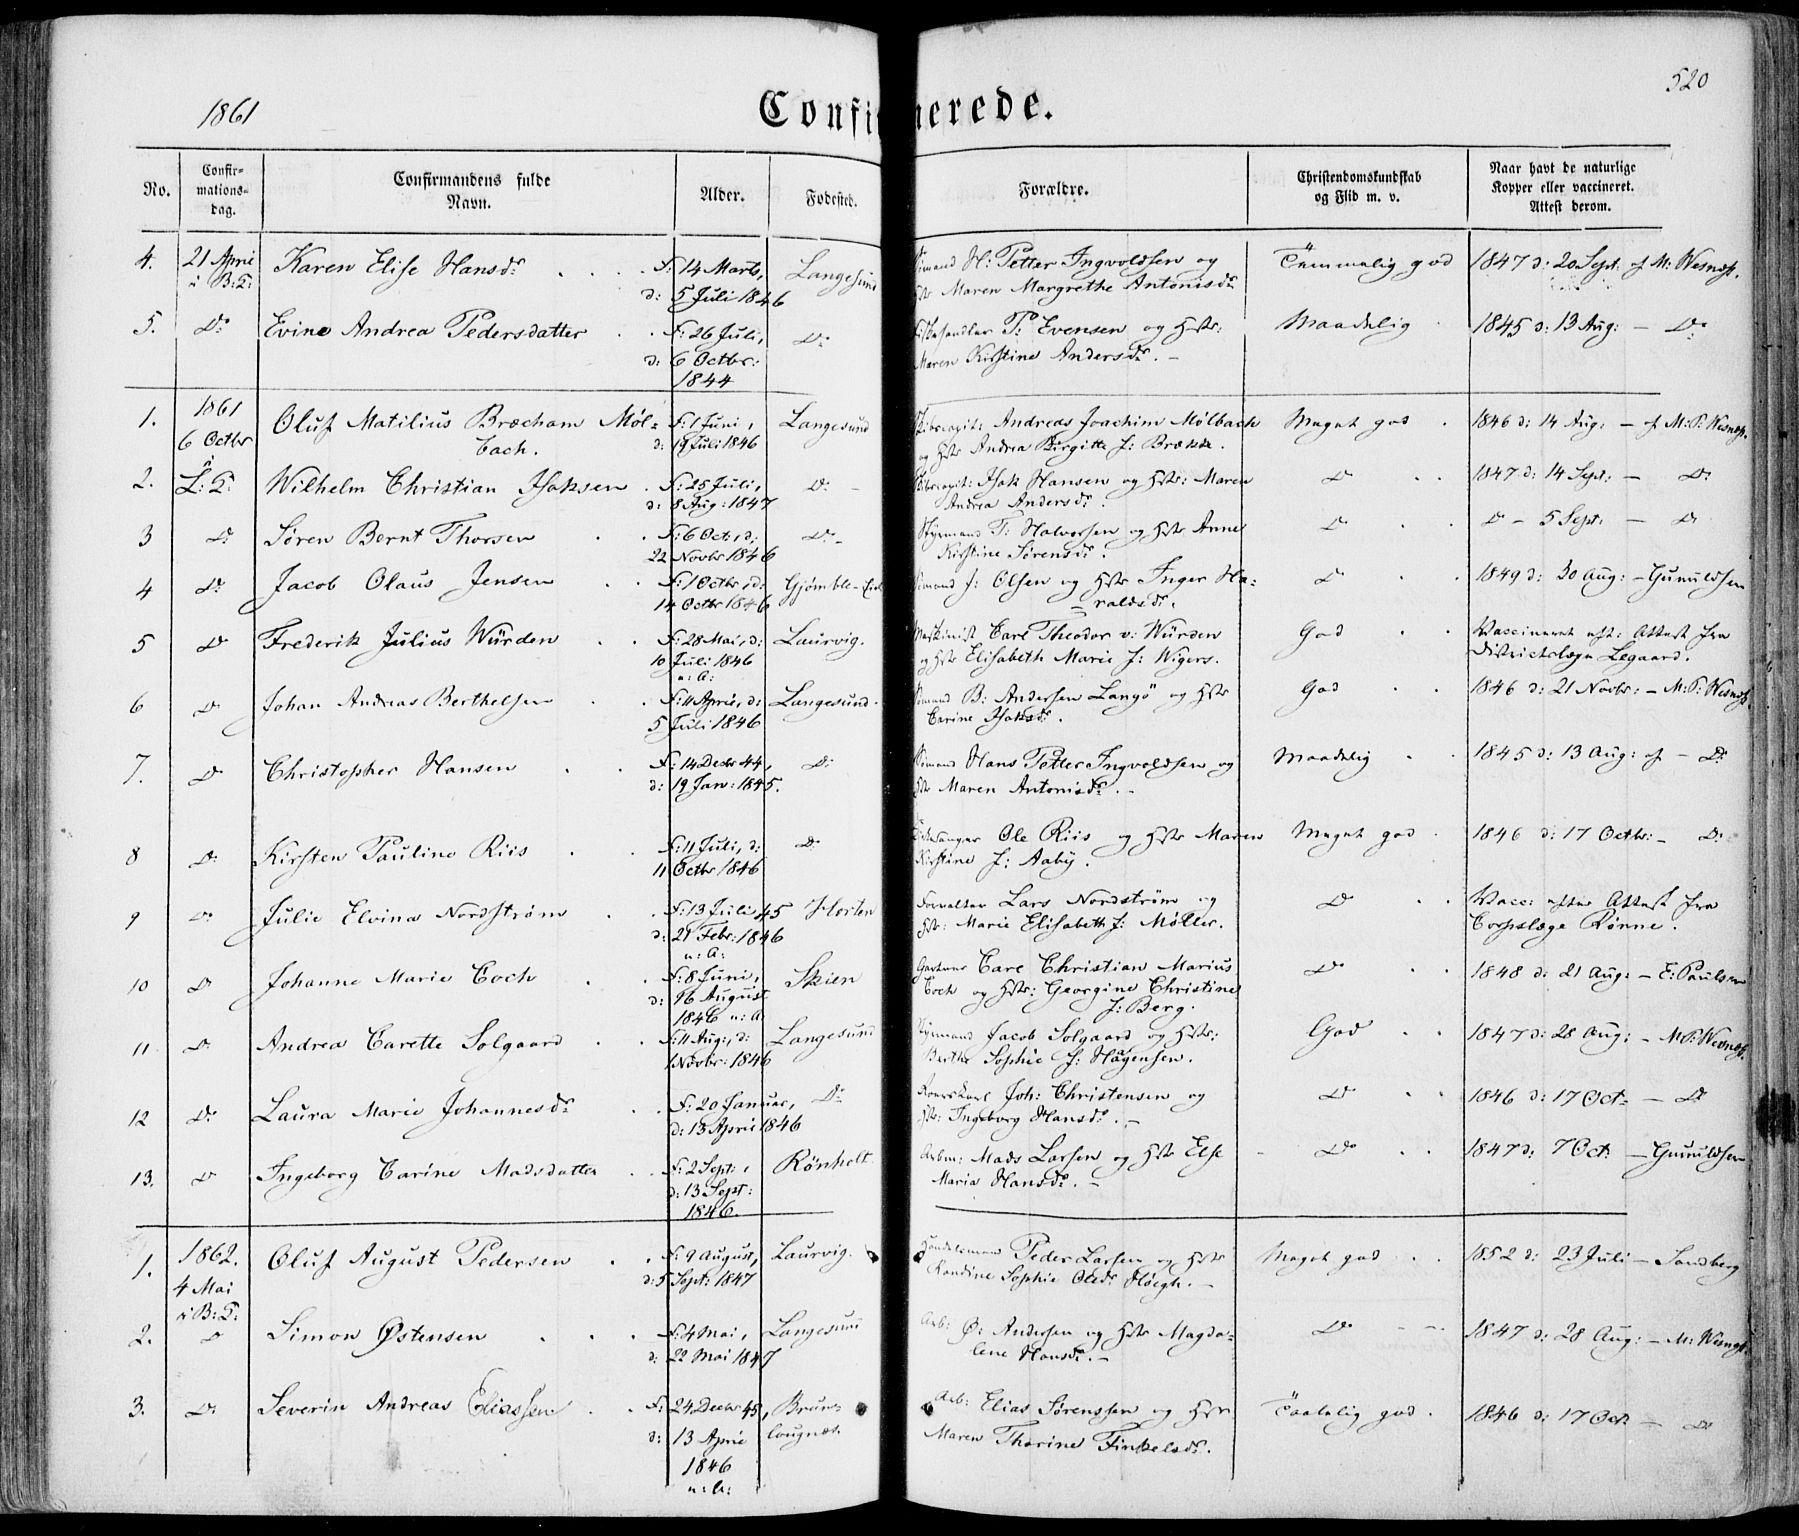 520
1861
Confirmerede.
No. | Confir-mations-dag. | Confirmandens fulde Navn. | Alder. | Fødested. | Forældre. | Christendomskundskab og Flid m. v. | Naar havt de naturlige Kopper eller vaccineret. Attest derom.
4. | 21 April i B: T: | Karen Elise Hansdr | F: 14 Marts, d: 5 Juli 1846 | Langesund | H: Petter Ingvoldsen og Hst Maren Margrethe Antonisdr | Temmelig god | 1847 d: 20 Sept: af M: Wesnæs.
5. | Do | Evine Andrea Pedersdatter | F: 26 Juli, d: 6 Octbr: 1844 | Do | P: Evensen og Hst: Maren Kirstine Andersdr. | Maadelig | 1845 d: 13 Aug: — Do
1. | 1861 6 Octbr i L: T: | Oluf Matilius Bræcham Mølbach. | F: 1 Juni, d: 19 Juli 1846 | Langesund | Skibscapit: Andreas Joachim Mølbach og Hst Andrea Birgitte f: Brække. | Meget god | 1846 d: 14 Aug: — af M: P: Wesnæs.
2. | Wilhelm Christian Isaksen | F: 25 Juli, d: 8 Aug: 1847 | Do | Skibscapit: Isak Hansen og Hst: Maren Andrea Andersdr | Do | 1847 d: 14 Sept: — Do
3 | Do | Søren Bernt Thorsen | F: 6 Oct:, d: 22 Novbr 1846 | Do | Styrmand T: Halvorsen og Hst Anne Kirstine Sørensdr. | Do | Do — 5 Sept: — Do
4 | Do | Jacob Olaus Jensen | F: 1 Octbr, d: 14 Octbr 1846 | Gjømble- | J: Olsen og Hst Inger Haraldsdr. | Do | 1849 d: 30 Aug: — Gunuldsen
5 | Do | Frederik Julius Würden | F: 28 Mai, d: 10 Juli 1846 u: A: | Laurvig. | Maskinist Carl Theodor v: Würden og Hst Elisabeth Marie f: Wigers. | God | Vaccineret eft: Attest fra Districtslæge Legaard.
6 | Do | Johan Andreas Berthelsen | F: 11 April, d: 5 Juli 1846 | Langesund | B: Andersen Langö og Hst Carine Isaksdr. | God | 1846 d: 21 Novbr: — M: P: Wesnæs.
7. | Do | Christopher Hansen | F: 14 Decbr 44, d: 19 Jan: 1845. | Do | Hans Petter Ingvoldsen og Hst Maren Antonisdr. | Maadelig | 1845 d: 13 Aug: af — Do
8 | Do | Kirsten Pauline Riis | F: 11 Juli, d: 11 Octbr 1846 | Do | Ole Riis og Hst Maren Kirstine f: Aaby. | Meget god | 1846 d: 17 Octbr: — Do
9 | Do | Julie Elvina Nordstrøm | F: 13 Juli 45 d: 21 Febr: 1846 u: A: | Horten | Forvalter Lars Nordstrøm og Hst: Marie Elisabeth f: Møller. | Do | Vacc: efter Attest fra Corpslæge Rønne.
10 | Do | Johanne Marie Coch | F: 8 Juni, d: 16 August 1846 u: A: | Skien | Gartner Carl Christian Marius Coch og Hst: Georgine Christine f: Berg. | Do | 1848 d: 21 Aug: — E: Paulsen
11 | Do | Andrea Carette Solgaard | F: 11 Aug:, d: 1 Novbr: 1846 | Langesund | Styrmand Jacob Solgaard og Hst: Berthe Sophie f: Høgensen. | God | 1847 d: 28 Aug: — M: P: Wesnæs.
12 | Do | Laura Marie Johannesdr | F: 20 Januar, d: 13 April 1846 | Do | Joh: Christensen og Hst: Ingeborg Hansdr. | Do | 1846 d: 17 Oct: — Do
13. | Do | Ingeborg Carine Madsdatter | F: 2 Sept:, d: 13 Sept: 1846. | Rönholt | Arbm: Mads Larsen og Hst Else Maria Hansdr. | Do | 1847 d: 7 Oct: — Gunuldsen
1. | 1862. 4 Mai i B: T: | Oluf August Pedersen | F: 9 August, d: 5 Sept: 1847 | Laurvig. | Handelsmand Peder Larsen og Hst Randine Sophie Olsdr Høegh. | Meget god | 1852 d: 23 Juli — Sandberg
2. | Do | Simon Østensen | F: 4 Mai, d: 22 Mai 1847 | Langesund | Arb: Ø: Andersen og Hst Magdalene Hansdr. | Do | 1847 d: 28 Aug: — M: Wesnæs.
3. | Do | Severin Andreas Eliassen | F: 24 Decbr 45, d: 13 April 1846 u: A: | Brunlougnæs. | Arb: Elias Sørenssen og Hst Maren Thorine Finkelsdr. | Taalelig god. | 1846 d: 17 Oct — Do